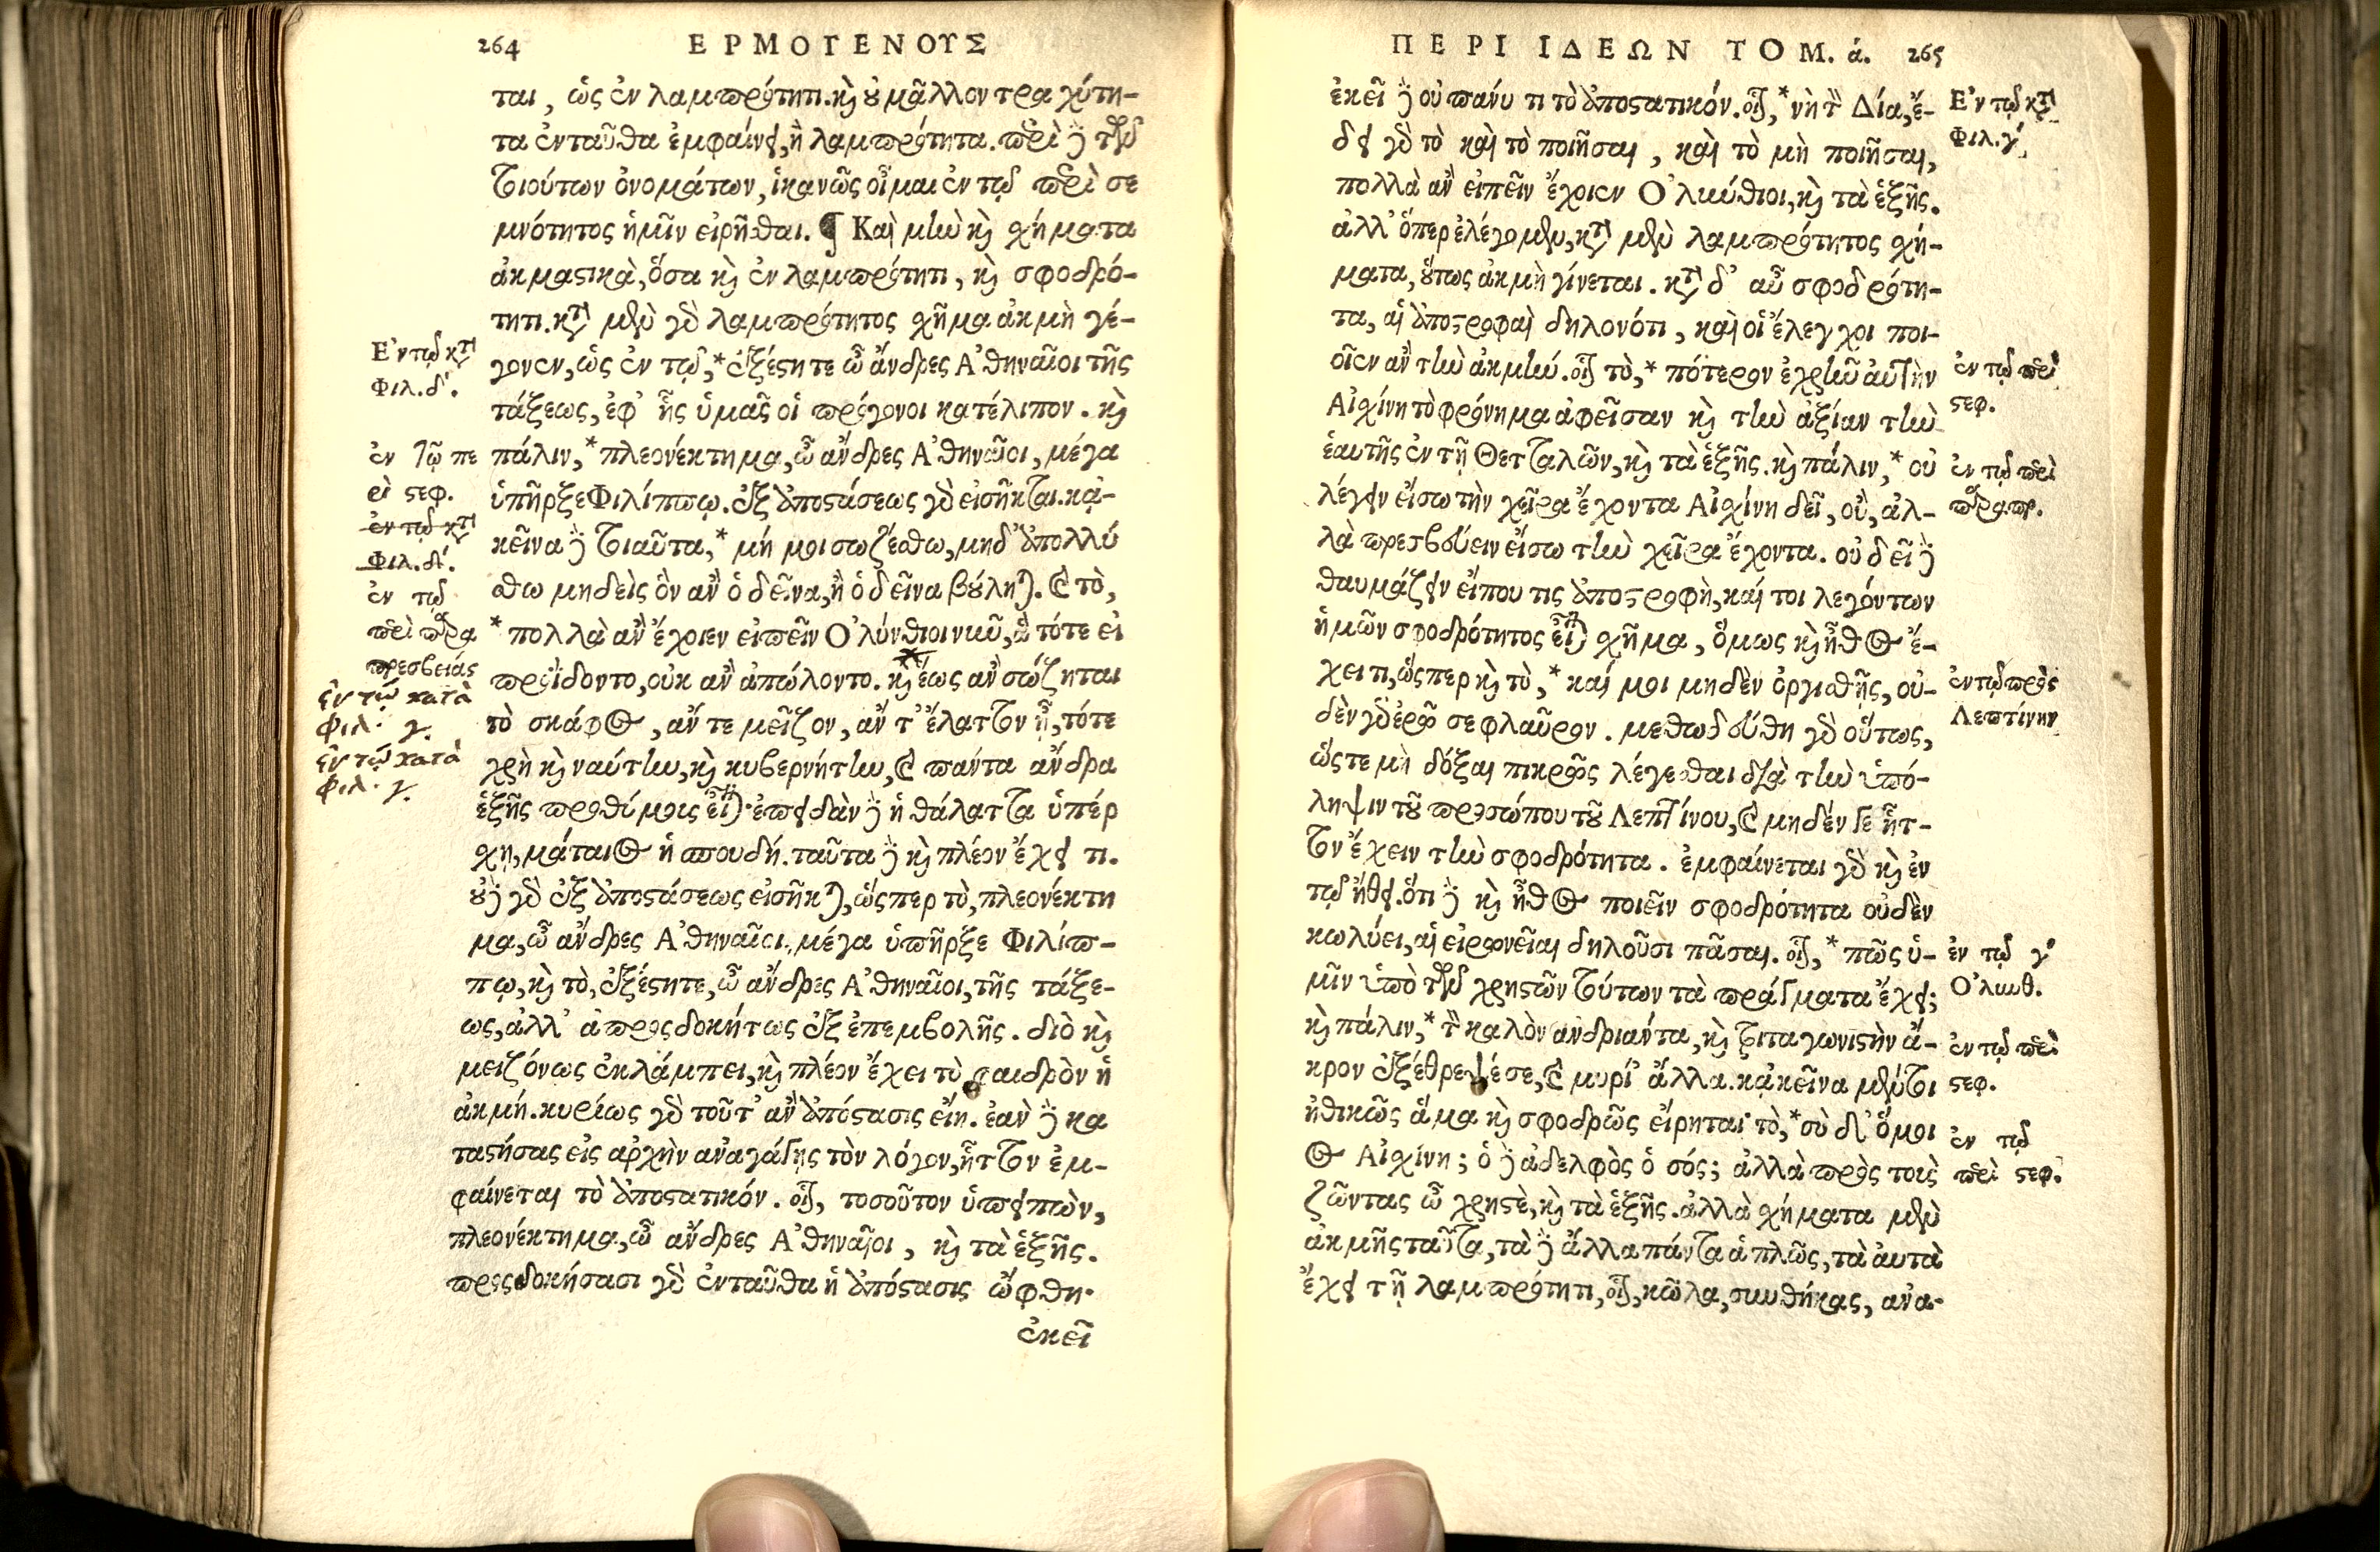 264 ΕΡΜΟΓΕΝΟΥΣ
ται, ὡς ἐν λαμπρότητι. καὶ οὐ μᾶλλον τραχύτη-
τα ἐνταῦθα ἐμφαίνει, ἢ λαμπρότητα. περὶ δὲ τῶν
τοιούτων ὀνομάτων, ἱκανῶς οἶμαι ἐν τῷ περὶ σε
μνότητος ἡμῖν εἰρῆσθαι. ¶ Καὶ μὴν καὶ σχήματα
ἀκμαστικὰ, ὅσα καὶ ἐν λαμπρότητι, καὶ σφοδρό-
τητι. κατὰ μὲν γὰρ λαμπρότητος σχῆμα ἀκμὴ γέ-
Ἐν τῷ κατὰ
Φιλ. δ'.
γονεν, ὡς ἐν τῷ, * ἐξέστητε ὦ ἄνδρες Ἀθηναῖοι τῆς
τάξεως, ἐφ' ἧς ὑμᾶς οἱ πρόγονοι κατέλιπον. καὶ
ἐν τῷ πε
ρὶ στεφ.
πάλιν, * πλεονέκτημα, ὦ ἄνδρες Ἀθηναῖοι, μέγα
ὑπῆρξε Φιλίππῳ. ἐξ ἀποστάσεως γὰρ εἰσῆκται. κᾀ-
ἐν τῷ κατὰ
Φιλ. δ'.
κεῖνα δὲ τοιαῦτα, * μή μοι σωζέσθω, μηδ' ἀπολλύ
σθω μηδεὶς ὃν ἂν ὁ δεῖνα, ἢ ὁ δεῖνα βούληται. καὶ τὸ,
ἐν τῷ
περὶ παρα
πρεσβείας
* πολλὰ ἂν ἔχοιεν εἰπεῖν Ὀλύνθιοι νῦν, ἃ τότε εἰ
προΐδοντο, οὐκ ἂν ἀπώλοντο. καὶ ἕως ἂν σώζηται
ἐν τῷ κατὰ
Φιλ. γ.
τὸ σκάφος, ἄν τε μεῖζον, ἄν τ' ἔλαττον ᾖ, τότε
ἐν τῷ κατὰ
Φιλ. γ.
χρὴ καὶ ναύτην, καὶ κυβερνήτην, καὶ πάντα ἄνδρα
ἑξῆς προθύμοις εἶναι· ἐπειδὰν δὲ ἡ θάλαττα ὑπέρ
σχῃ, μάταιος ἡ σπουδή. ταῦτα δὲ καὶ πλέον ἔχει τι.
οὐδὲ γὰρ ἐξ ἀποστάσεως εἰσῆκται, ὥσπερ τὸ, πλεονέκτη
μα, ὦ ἄνδρες Ἀθηναῖοι, μέγα ὑπῆρξε Φιλίπ-
πῳ, καὶ τὸ, ἐξέστητε, ὦ ἄνδρες Ἀθηναῖοι, τῆς τάξε-
ως, ἀλλ' ἀπροσδοκήτως ἐξ ἐπεμβολῆς. διὸ καὶ
μειζόνως ἐκλάμπει, καὶ πλέον ἔχει τὸ φαιδρὸν ἡ
ἀκμή. κυρίως γὰρ τοῦτ' ἂν ἀπόστασις εἴη. ἐὰν δὲ κα
ταστήσας εἰς ἀρχὴν ἀναγάγῃς τὸν λόγον, ἧττον ἐμ-
φαίνεται τὸ ἀποστατικόν. οἷον, τοσοῦτον ὑπειπὼν,
πλεονέκτημα, ὦ ἄνδρες Ἀθηναῖοι, καὶ τὰ ἑξῆς.
προσδοκήσασι γὰρ ἐνταῦθα ἡ ἀπόστασις ὤφθη·
ἐκεῖ
ΠΕΡΙ ΙΔΕΩΝ ΤΟΜ. ά. 265
ἐκεῖ δὲ οὐ πάνυ τι τὸ ἀποστατικόν. οἷον, * νὴ τὸν Δία, ἔ-
Ἐν τῷ κατὰ
Φιλ. γ'.
δει γὰρ τὸ καὶ τὸ ποιῆσαι, καὶ τὸ μὴ ποιῆσαι,
πολλὰ ἂν εἰπεῖν ἔχοιεν Ὀλύνθιοι, καὶ τὰ ἑξῆς.
ἀλλ' ὅπερ ἐλέγομεν, κατὰ μὲν λαμπρότητος σχή-
ματα, οὕτως ἀκμὴ γίνεται. κατὰ δ' αὖ σφοδρότη-
τα, αἱ ἀποστροφαὶ δηλονότι, καὶ οἱ ἔλεγχοι ποι-
οῖεν ἂν τὴν ἀκμήν. οἷον τὸ, * πότερον ἐχρῆν αὐτὴν
ἐν τῷ περὶ
στεφ.
Αἰσχίνη τὸ φρόνημα ἀφεῖσαν καὶ τὴν ἀξίαν τὴν
ἑαυτῆς ἐν τῇ Θετταλῶν, καὶ τὰ ἑξῆς. καὶ πάλιν, * οὐ
ἐν τῷ περὶ
παραπρ.
λέγειν εἴσω τὴν χεῖρα ἔχοντα Αἰσχίνη δεῖ, οὔ, ἀλ-
λὰ πρεσβεύειν εἴσω τὴν χεῖρα ἔχοντα. οὐ δεῖ δὲ
θαυμάζειν εἴπου τις ἀποστροφὴ, καί τοι λεγόντων
ἡμῶν σφοδρότητος εἶναι σχῆμα, ὅμως καὶ ἦθος ἔ-
χει τι, ὥσπερ καὶ τὸ, * καί μοι μηδὲν ὀργισθῇς, οὐ-
ἐν τῷ πρὸς
Λεπτίνην
δὲν γὰρ ἐρῶ σε φλαῦρον. μεθωδεύθη γὰρ οὕτως,
ὥστε μὴ δόξαι πικρῶς λέγεσθαι διὰ τὴν ὑπό-
ληψιν τοῦ προσώπου τοῦ Λεπτίνου, καὶ μηδέν γε ἧτ-
τον ἔχειν τὴν σφοδρότητα. ἐμφαίνεται γὰρ καὶ ἐν
τῷ ἤθει. ὅτι δὲ καὶ ἦθος ποιεῖν σφοδρότητα οὐδὲν
κωλύει, αἱ εἰρωνεῖαι δηλοῦσι πᾶσαι. οἷον, * πῶς ὑ-
ἐν τῷ γ'
Ὀλυνθ.
μῖν ὑπὸ τῶν χρηστῶν τούτων τὰ πράγματα ἔχει;
καὶ πάλιν, * τὸν καλὸν ἀνδριάντα, καὶ τριταγωνιστὴν ἄ-
ἐν τῷ περὶ
στεφ.
κρον ἐξέθρεψέ σε, καὶ μυρί' ἄλλα. κᾀκεῖνα μέντοι
ἠθικῶς ἅμα καὶ σφοδρῶς εἴρηται· τὸ, * σὺ δ' ὅμοι
ἐν τῷ
περὶ στεφ.
ος Αἰσχίνη; ὁ δὲ ἀδελφὸς ὁ σός; ἀλλὰ πρὸς τοὺς
ζῶντας ὦ χρηστὲ, καὶ τὰ ἑξῆς. ἀλλὰ σχήματα μὲν
ἀκμῆς ταῦτα, τὰ δὲ ἄλλα πάντα ἁπλῶς, τὰ ἀυτὰ
ἔχει τῇ λαμπρότητι, οἷον, κῶλα, συνθήκας, ἀνα-